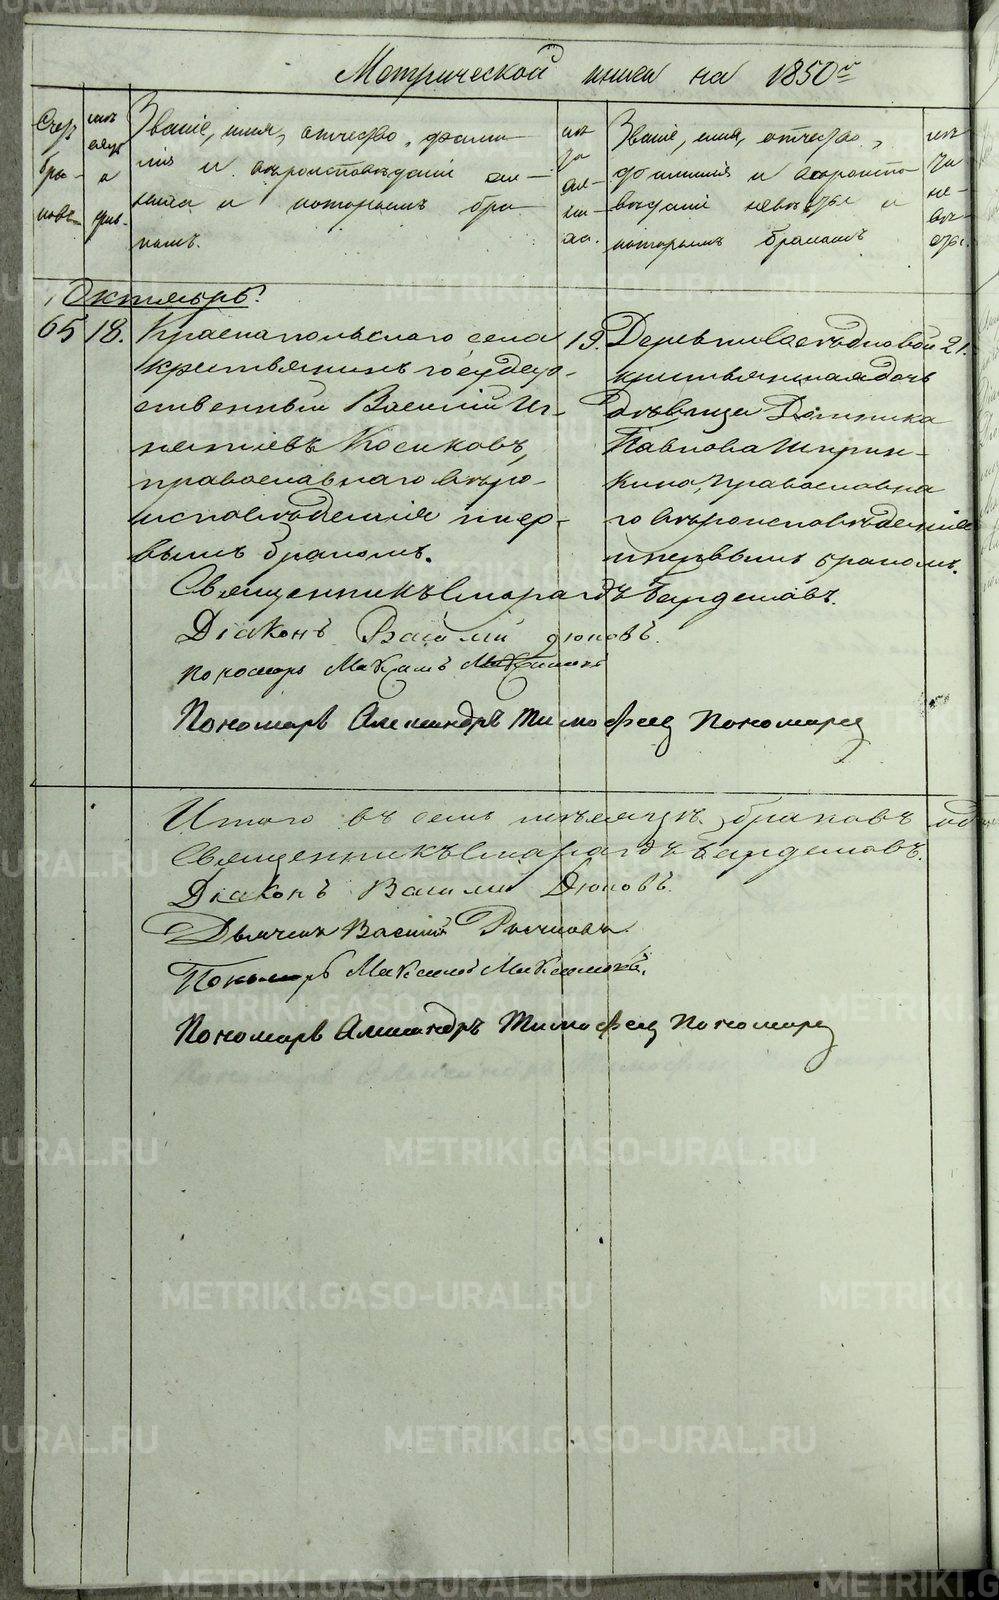 Метрической книги на 1850й
Счетъ браковъ
мѣсяцъ и день.
Званіе, имя, отчество, фами-
лія и вѣроисповѣданіе же-
ниха и которымъ бра-
комъ.
лѣта жениха.
Званіе, имя, отчество,
фамилія и вѣроиспо-
вѣданіе невѣсты и
которымъ бракомъ
лѣта невѣсты.
Октябрь.
65 18.
Краснапольскаго села
крестьянинъ государ-
ственный Василій Иг-
натіевъ Косиковъ,
православнаго вѣро-
исповѣданія пер-
вымъ бракомъ.
19.
Деревни
крестьянская дочь
дѣвица Домника
Павлова Ширин-
кина, православна
го вѣроисповѣданія
первымъ бракомъ.
21.
Священникъ Смарагдъ
Діаконъ Василій Дюковъ.
Пономарь Максимъ
Пономарь Александръ Тимофеев Пономарев
Итого въ семъ мѣсяцѣ браковъ
Священникъ Смарагдъ
Діаконъ Василій Дюковъ.
Дьячекъ Василій
Пономарь Максимъ
Пономарь Александръ Тимофеев Пономарев
METRIKI.GASO-URAL.RU